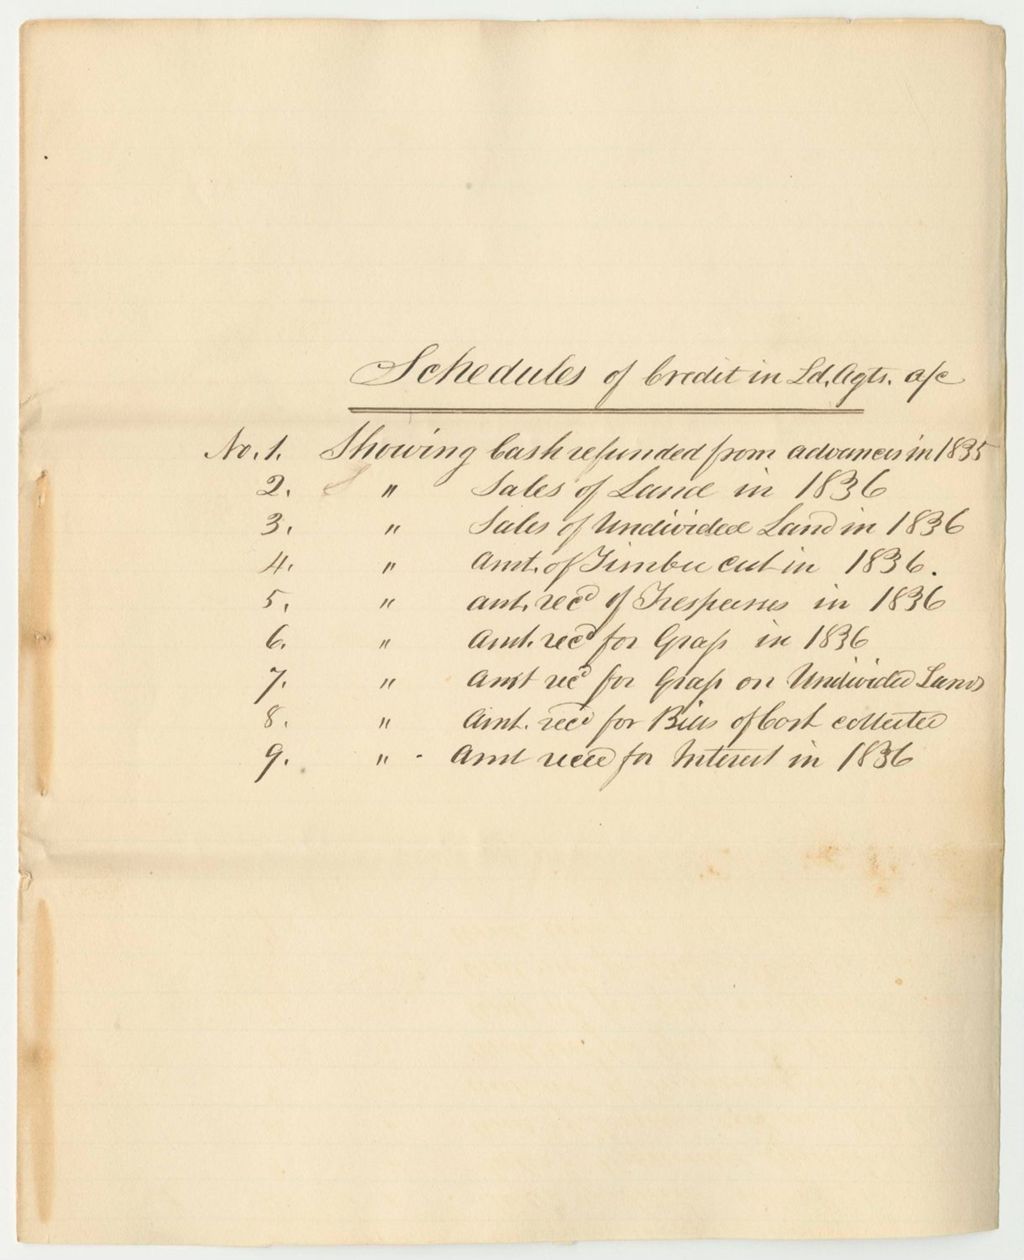 Schedules of Credit in Ld. Agts. a/c
No. 1. Showing Cash refunded from advances in 1835
2. " Sales of Land in 1836
3. " Sales of Undivided Land in 1836
4. " Amt. of Timber cut in 1836.
5. " amt. recd of Trespasses in 1836
6. " Amt. recd for Grass in 1836
7. " Amt recd for Grass on Undivided Lands
8. " Amt. recd for Bills of Cost collected
9. " - Amt recd for Interest in 1836